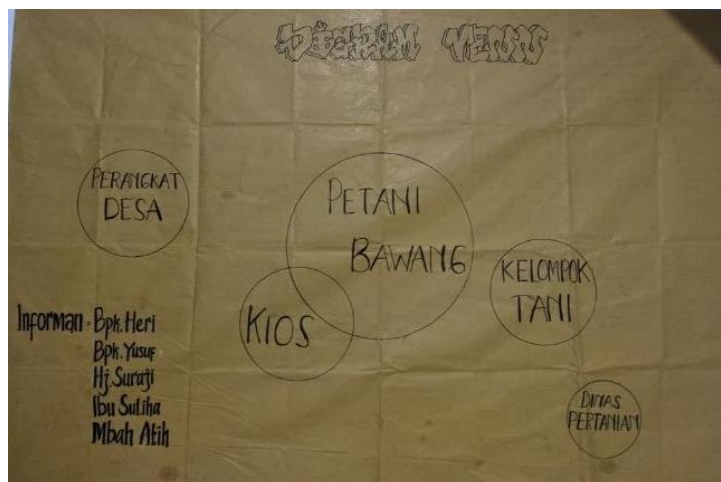 DIAGRAM VENN
PERANGKAT
DESA
PETANI
BAWANG
KELOMPOK
TANI
KIOS
DINAS
PERTANIAN
Informan = Bpk. Heri
Bpk. Yusuf
Hj. Suraji
Ibu Suliha
Mbah Atih